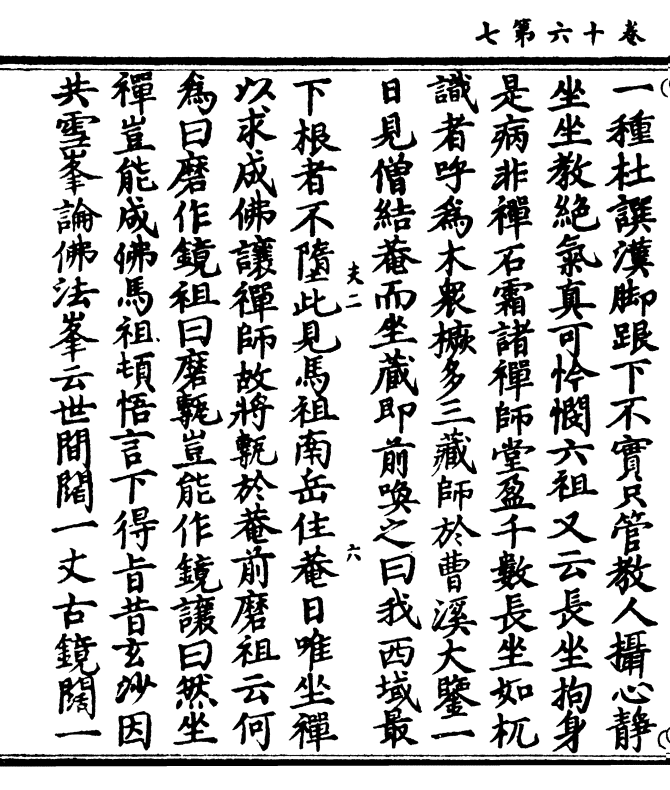 卷十六第七
一種杜譔漢脚跟下不實只管教人攝心靜
坐坐教絶氣真可怜憫六祖又云長坐拘身
是病非禪石霜諸禪師堂盈千數長坐如杌
識者呼爲木衆橛多三藏師於曹溪大鑒一
日見僧結菴而坐藏即前喚之曰我西域最
夫二
六
下根者不墮此見馬祖南岳住菴日唯坐禪
以求成佛讓禪師故將甎於菴前磨祖云何
爲曰磨作鏡祖曰磨甎豈能作鏡讓曰然坐
禪豈能成佛馬祖頓悟言下得旨昔玄沙因
共雪峯論佛法峯云世間闊一丈古鏡闊一